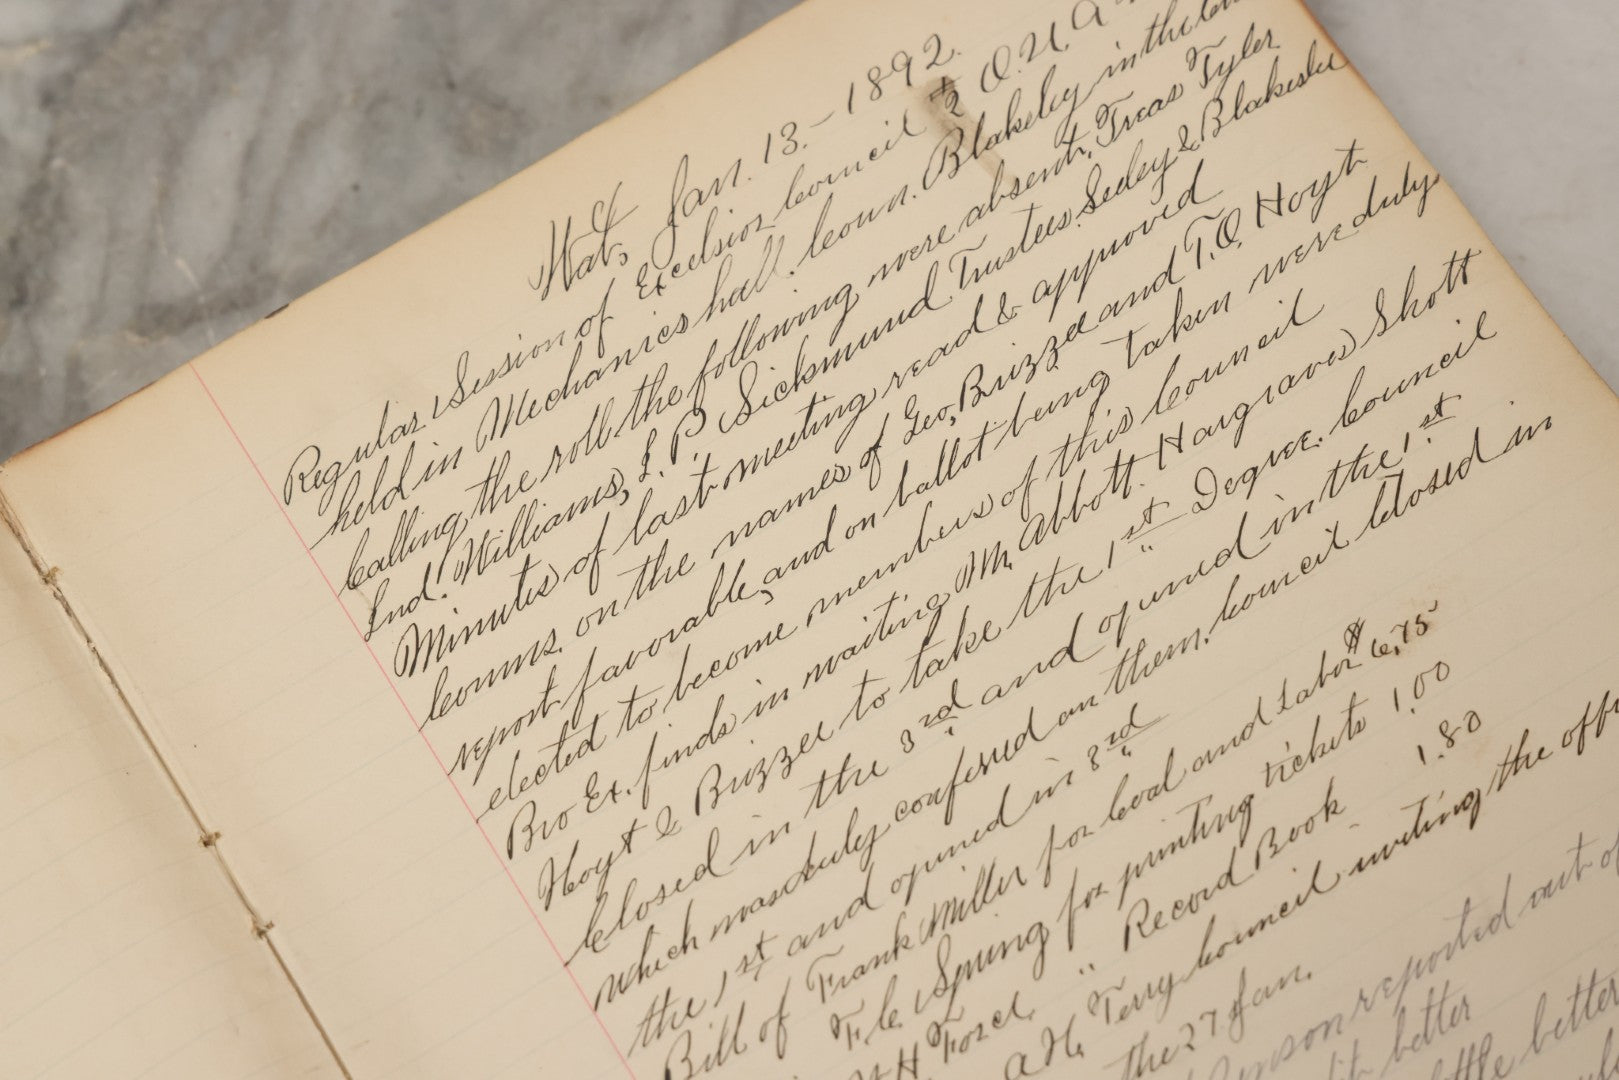 Wat, Ct Jan. 13.-1892.
Regular Session of Excelsior Council O.U.A
held in Mechanics hall. Coun. Blakeley in the
Calling the roll the following were absent, Treas Tyler
Ind. Williams, L. P. Sicksmund Trustees. Seeley & Blakeslee
Minutes of last meeting read & approved
Comms. on the names of Geo, Buzzee and T.O. Hoyt
report favorable, and on ballot being taken were duly
elected to become members of this Council
Bro Ex. finds in waiting Mr. Abbott. Hargraves Shott
Hoyt & Buzzee to take the 1st Degree. Council
Closed in the 3rd and opened in the 1st
which was duly conferred on them. Council Closed in
the 1st and opened in 3rd
Bill of Frank Miller for Coal and Labor $6,75
F. C. Spring for printing tickets 1.00
H Force, " Record Book 1.80
A H. Terry Council inviting the
the 27 Jan.
reported out of
better
better